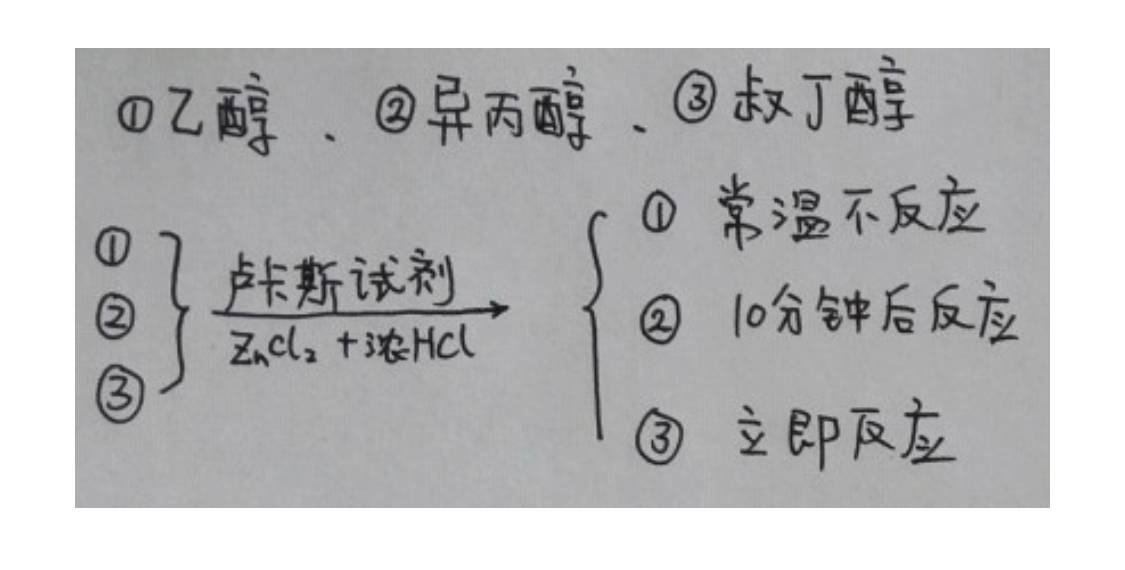 ①乙醇、②异丙醇、③叔丁醇
① ① 常温不反应
卢卡斯试剂
② ② 10分钟后反应
ZnCl₂+浓HCl
③ ③ 立即反应